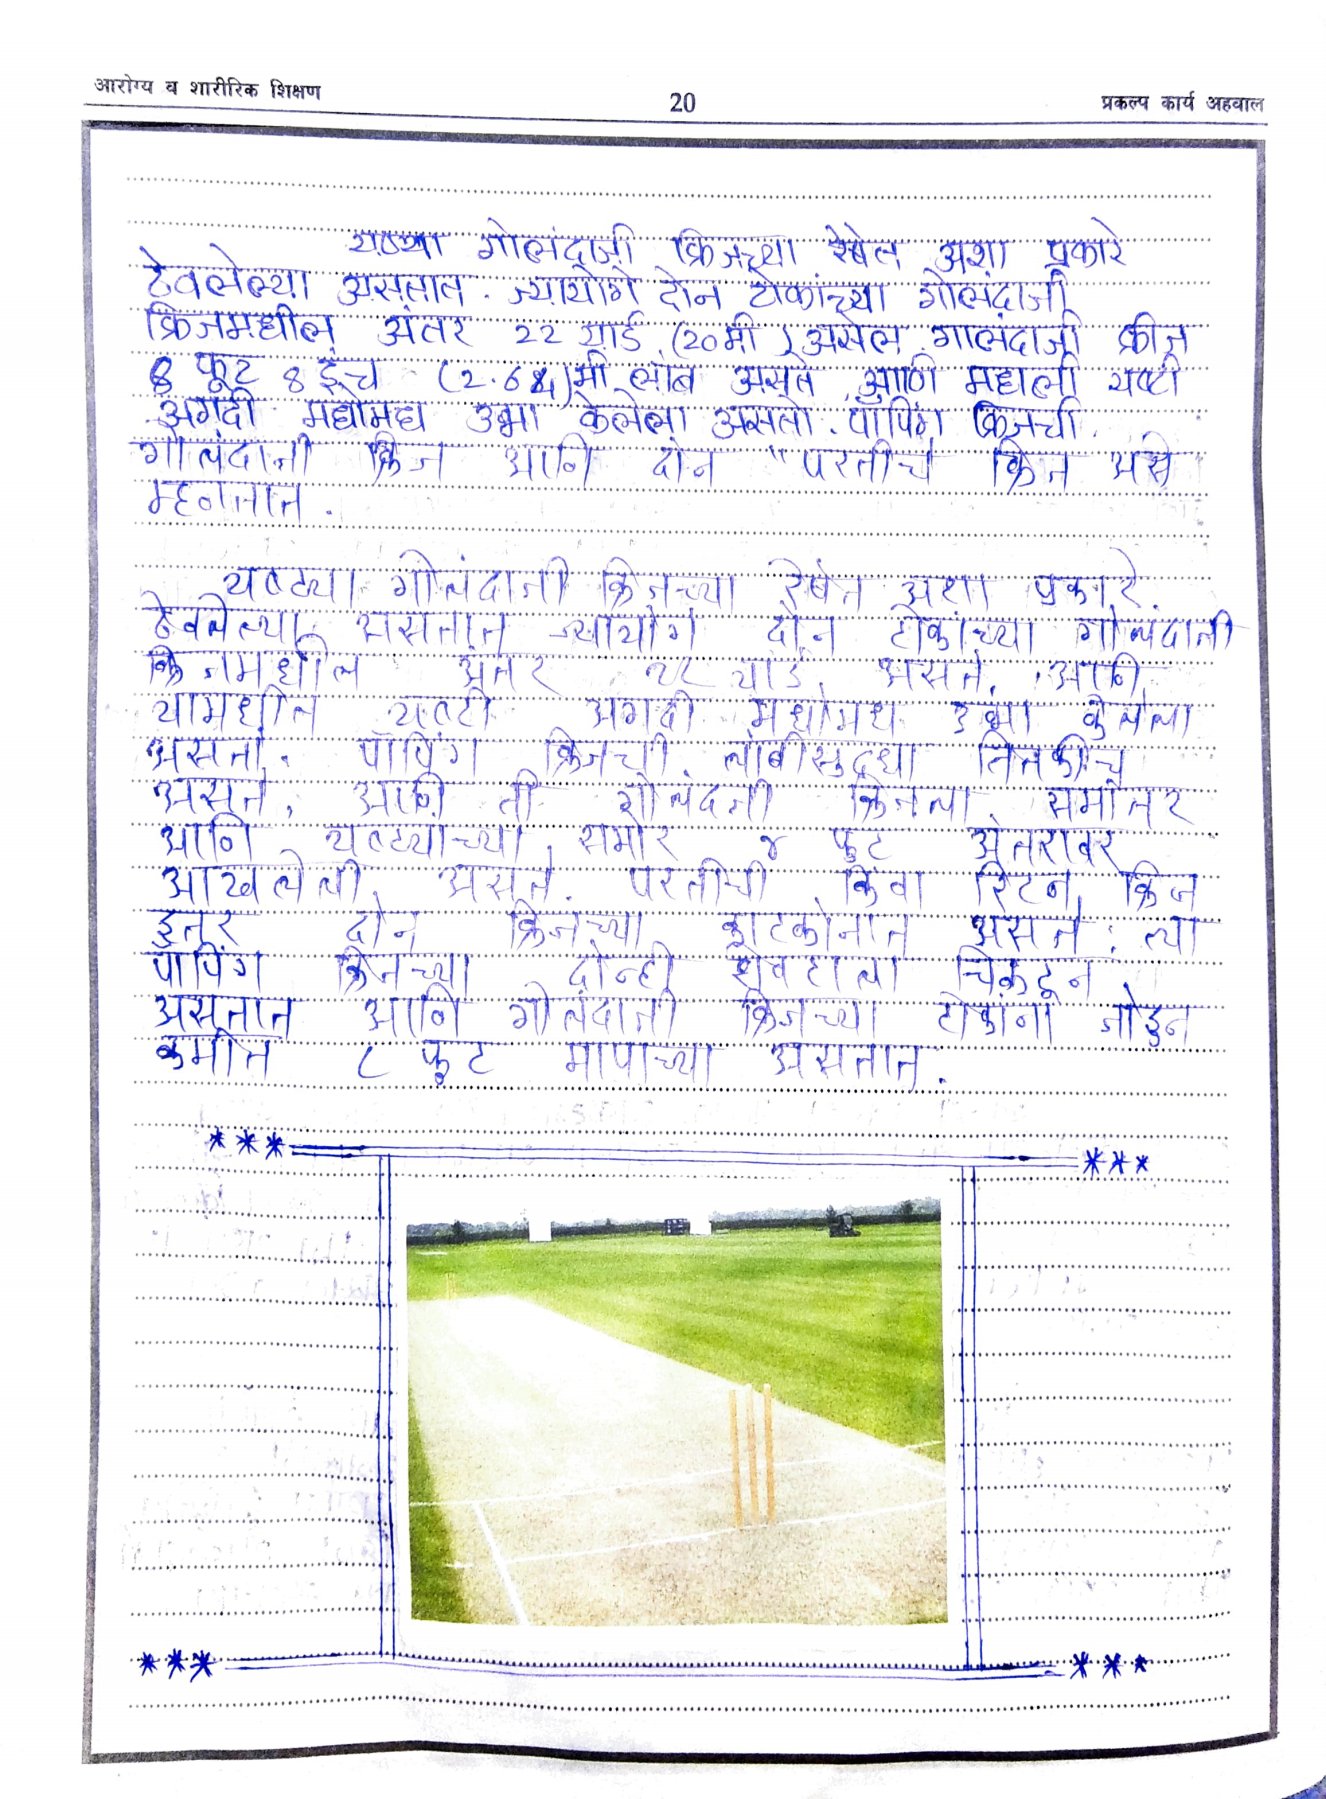 आरोग्य व शारीरिक शिक्षण
20
प्रकल्प कार्य अहवाल
यष्ट्या गोलंदाजी क्रिजच्या रेषेत अशा प्रकारे
ठेवलेल्या असतात. ज्यायोगे दोन टोकांच्या गोलंदाजी
क्रिजमधील अंतर 22 यार्ड (20मी) असेल. गोलंदाजी क्रीज
8 फूट 8 इंच मी लांब असते, आणि मधली यष्टी
अगदी मधोमध उभा केलेला असतो. पॉपिंग क्रिजची
गोलंदाजी क्रिज आणि दोन "परतीचे क्रिज असे
म्हणतात.
यष्ट्या गोलंदाजी क्रिजच्या रेषेत अशा प्रकारे
ठेवलेल्या असतात ज्यायोगे दोन टोकांच्या गोलंदाजी
क्रिजमधील अंतर २२ यार्ड असते, आणि
यामधील यष्टी अगदी मधोमध उभा केलेला
असतो. पॉपिंग क्रिजची लांबीसुद्धा तितकीच
असते, आणि ती गोलंदाजी क्रिजला समांतर
आणि यष्ट्यांच्या समोर ४ फुट अंतरावर
आखलेली असते. परतीची किंवा रिटर्न क्रिज
इतर दोन क्रिजच्या काटकोनात असते. त्या
पॉपिंग क्रिजच्या दोन्ही शेवटाला चिकटून
असतात आणि गोलंदाजी क्रिजच्या टोकांना जोडून
कमीत ८ फुट मापाच्या असतात.